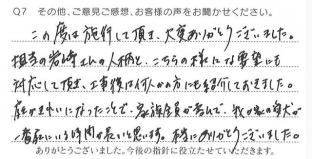 Q7 その他、ご意見ご感想、お客様の声をお聞かせください。
この度は施行して頂き、大変ありがとうございました。
担当の岩崎さんの人柄と、こちらの様になる要望にも
対応して頂き、工事後は何人かの方にも紹介しておきました。
庭がきれいになったことで、家族全員が喜んで、我が家の
一番庭にいる時間が長いと思います。本当にありがとうございました。
ありがとうございました。今後の指針に役立たせていただきます。